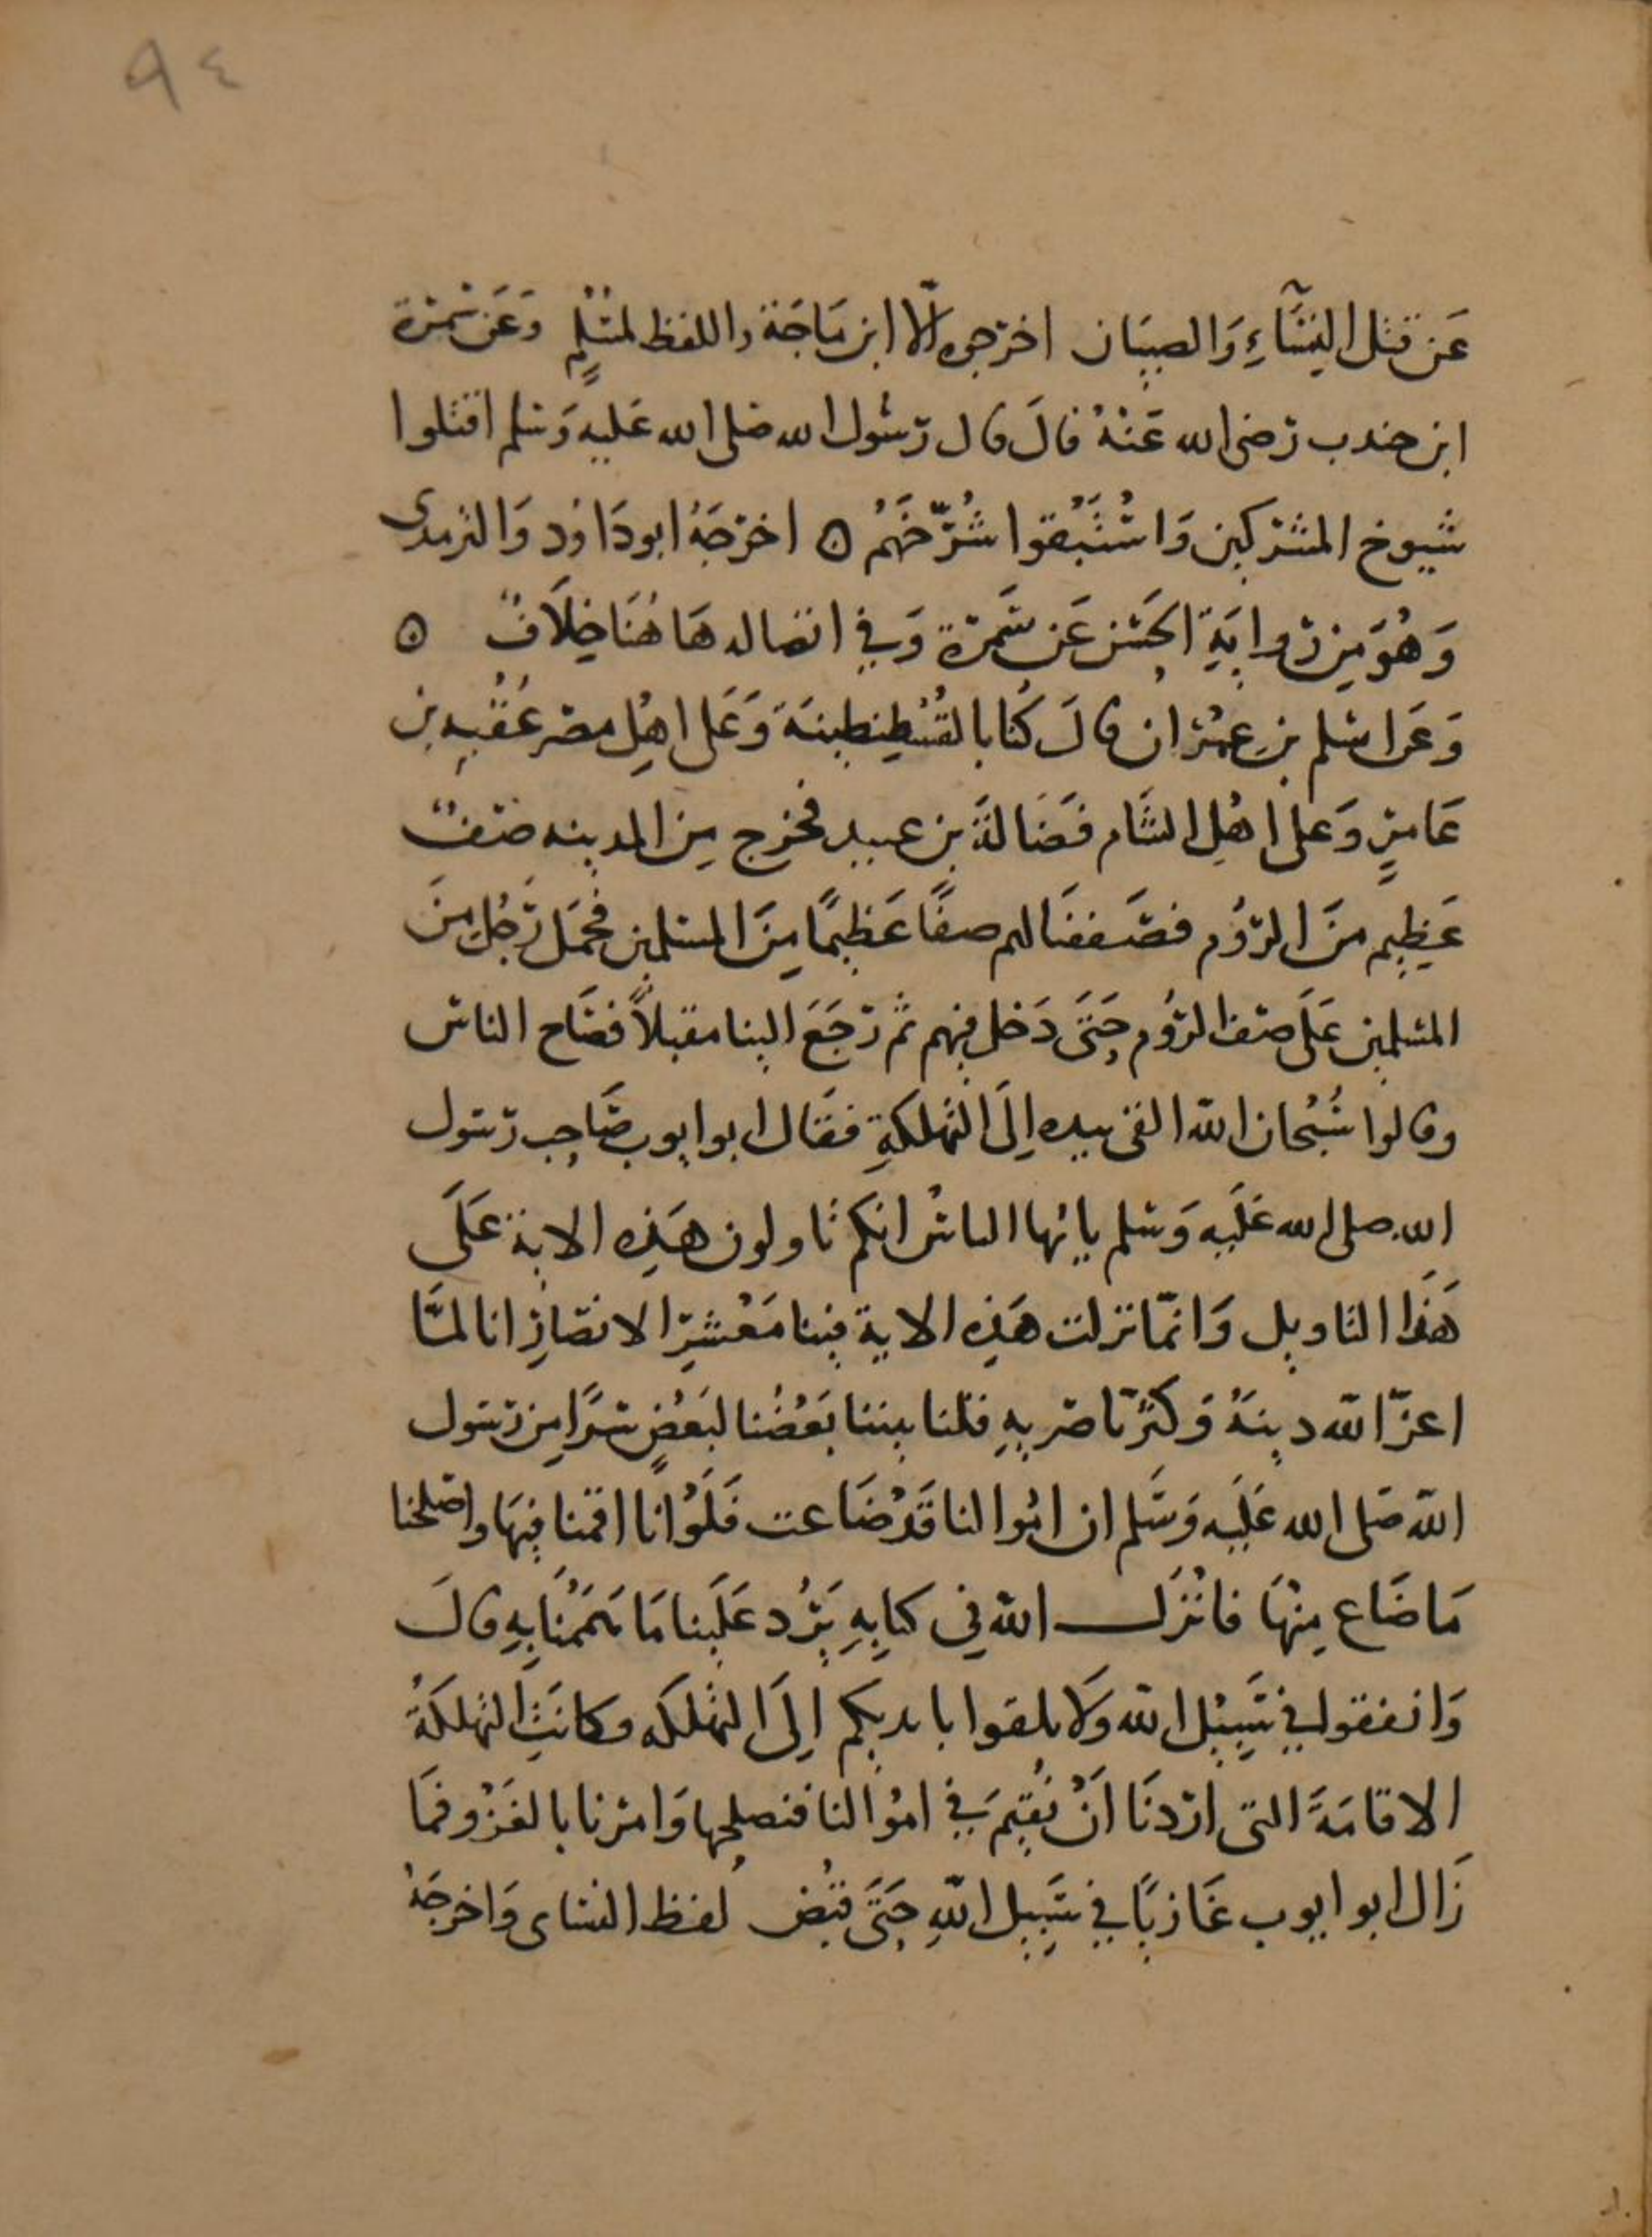 ٩٤
عَن قتل النِسَّاءِ وَالصبيَان اخرجوه الّا ابن مَاجَة واللفظ لمسْلمٍ وَعَن سَمُرَة
ابن جندب رَضى الله عَنْهُ قالَ قال رَسُول الله صَلى الله عَليهِ وَسَلم اقتلوا
شيوخ المشركين وَاسْتَبْقوا شُرَّخَهُم ٥ اخرَجَهُ ابودَاوُد وَالترمدى
وَهُوَ مِن رِوايَةِ الحَسَن عَن سَمُرَة وَفي اتصاله هَاهُنَا خِلَافٌ ٥
وَعَن اسْلم بن عِمْرَان قالَ كُنا بالقُسْطِنطينيَة وَعَلى اهْلِ مصْر عُقْبه بن
عَامرٍ وَعَلى اهْلِ الشَام فَضَالَة بن عبيد فخرج مِن المدينه صَفٌ
عَظِيم منَ الرُّوْم فصَففنَا لهم صفًا عَظِيمًا مِنَ المسلمين فحمَل رَجُل منَ
المسْلمين عَلَى صَف الرُّوْم حَتىَ دَخل فيهم ثم رَجَعَ الينا مقبلاً فصَاح الناسُ
وقالوا سُبْحان اللّه القى بيده اِلَى التهلكَةِ فقَال ابو ايوب صَاحِب رَسُول
الله صلى الله عَلَيه وَسَلم يايُها الناسُ انكم تاولون هَذِه الاية عَلَى
هَذَا التاويل وَانمَّا نزلت هَذِه الاية فينا مَعْشَرَ الانصَارِ انا لمَّا
اعزّ اللّه دينَهُ وَكثرَ ناصريهِ قلنا بيننا بَعْضُنا لبَعْضٍ سرًا مِن رَسُول
اللّه صَلى الله عَلَيه وَسَلم ان امْوالنا قَدْ ضَاعت فَلَوْ انا اقمنا فيهَا واصْلحنا
مَا ضَاع مِنْهَا فانْزَل اللّه في كتابِهِ يَرُد عَلَينا مَا هَمَمْنا بِهِ قالَ
وَانفقوا في سَبِيْلِ اللّه وَلَا تلقوا بايديكم اِلَى التهلكَه وكانَتِ التهلكَةُ
الاقامَةَ التى ارَدنَا اَنْ نُقِيْمَ في امْوالنا فنصلحها وَامرنا بالغَزْو فمَا
زَال ابو ايوب غَازيًا في سَبِيلِ اللّهِ حَتىَ قبُض لفظ النساى وَاخرجَهُ